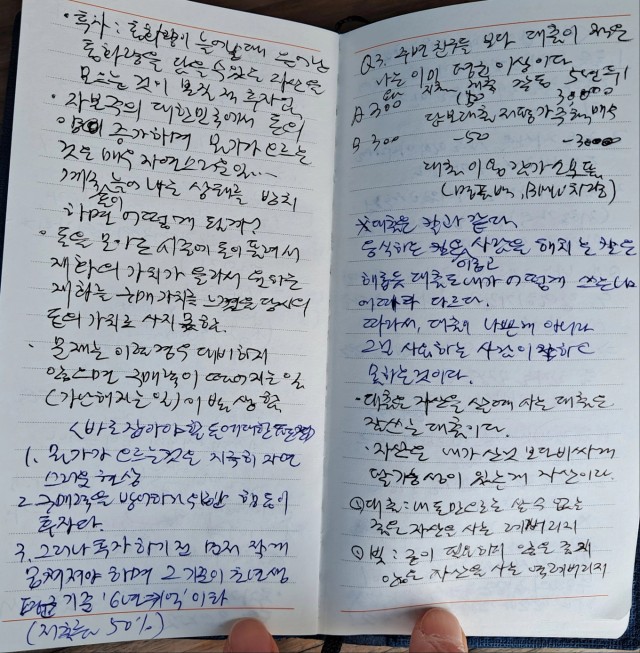 · 투자 : 통화량이 늘어날때 늘어난
통화량을 담을 수 있는 자산을
모으는 것이 본질적 투자다.
· 자본주의 대한민국에서 돈의
양이 증가하며 물가가 오르는
것은 매우 자연스러운 일...
계속 돈이 늘어나는 상태를 방치
하면 어떻게 될까?
· 돈을 모아둔 시점에 돈이 풀려서
재화의 가치가 올라서 원하는
재화를 구매가치를 느꼈을 당시의
돈의 가치로 사지 못함.
· 문제는 이런 경우 대비하지
않으면 구매력이 떨어지는 일
(가난해지는 일)이 발생함
<바로잡아야할 돈에대한 >
1. 물가가 오르는것은 지극히 자연
스러운 현상
2. 구매력을 방어하기 위한 행동이
투자다.
3. 그러나 투자하기 전 먼저 잘게
굶쳐져야 하며 그 기준이 초년생
기준 '6년 억' 이라
(저축률 50%)
Q3. 주변 친구들 보다 대출이 많은
나는 이미 망한 이상이다
지출 저축 5년뒤!
A 300 150 30,000
담보대출, 저평가 주택 매수
B 300 -50 -3000
대출 이용 값가 소모품
(명품백, BMW 차량)
※ 대출은 칼과 같다.
음식하는 칼은 이롭고 사람을 해치는 칼은
해롭듯 대출도 내가 어떻게 쓰는냐에
따라 다르다.
따라서, 대출이 나쁜게 아니라
그걸 사용하는 사람이 잘하냐
못하는것이다.
· 대출은 자산을 살때에 사는 대출은
잘쓰는 대출이다.
· 자산은 내가 산것 보다 비싸게
팔 가능성이 있는게 자산이다.
① 대출 : 내 돈만으로는 살수 없는
좋은 자산을 사는 레버리지
② 빚 : 굳이 필요하지 않은 좋지
않은 자산을 사는 역레버리지